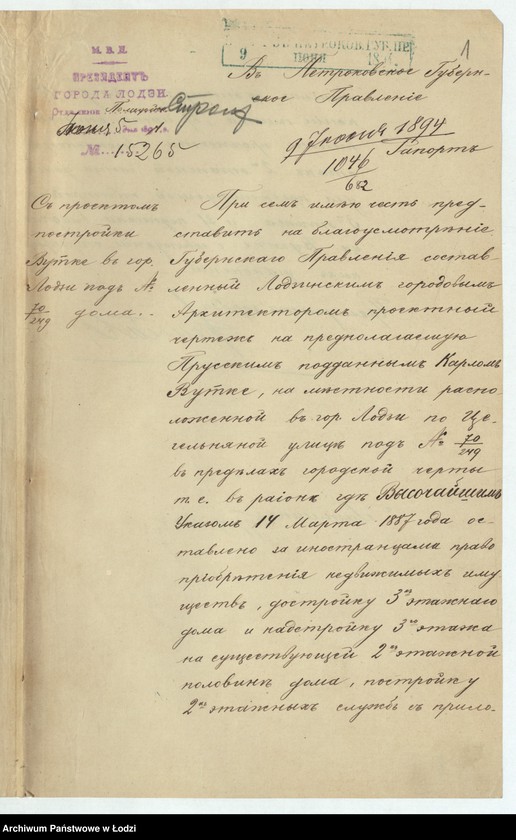 1
М. В. Д.
ПРЕЗИДЕНТЪ
ГОРОДА ЛОДЗИ.
№ 15265
9 ІЮНЯ
Въ Петроковское Губерн-
ское Правленіе
9 Іюня 1894
1046
62
Рапортъ
Съ проектомъ
постройки
Вутке въ гор.
Лодзи подъ №
70/249 дома..
При семъ имѣю честь пред-
ставить на благоусмотрѣніе
Губернскаго Правленія состав-
ленный Лодзинскимъ городовымъ
Архитекторомъ проектный
чертежъ на предполагаемую
Прусскимъ подданнымъ Карломъ
Вутке, на мѣстности распо-
ложенной въ гор. Лодзи по Це-
гельняной улицѣ подъ № 70/249
въ предѣлахъ городской черты
т. е. въ раіонѣ гдѣ Высочайшимъ
Указомъ 14 Марта 1887 года ос-
тавлено за иностранцами право
пріобрѣтенія недвижимыхъ иму
ществъ, достройку 3хъ этажнаго
дома и надстройку 3го этажа
на существующей 2хъ этажной
половинѣ дома, постройку
2хъ этажныхъ службъ съ прило-
Archiwum Państwowe w Łodzi